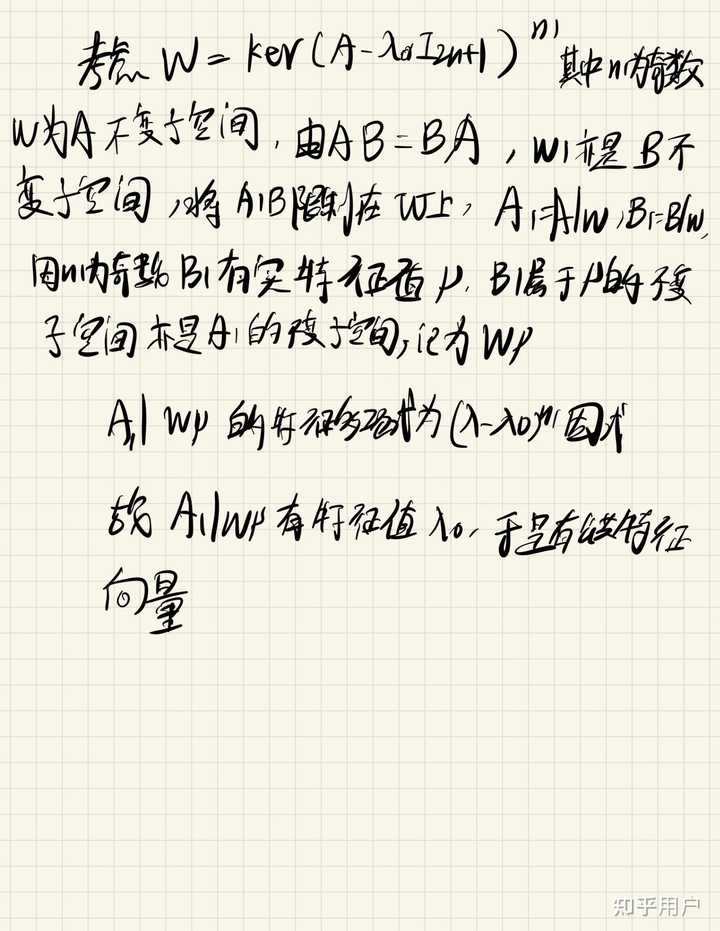 考虑 W = ker(A-λ₀I₂ₙ₊₁)ⁿ¹ 其中n₁为奇数
W为A不变子空间,由AB=BA,W亦是B不
变子空间,将A,B限制在W上,A₁=A|W,B₁=B|W,
因n₁为奇数B₁有实特征值μ. B₁属于μ的子
子空间亦是A₁的子空间,记为Wμ
A₁|Wμ的特征多项式为(λ-λ₀)ⁿ¹因式
故A₁|Wμ有特征值λ₀.于是有公共特征
向量
知乎用户